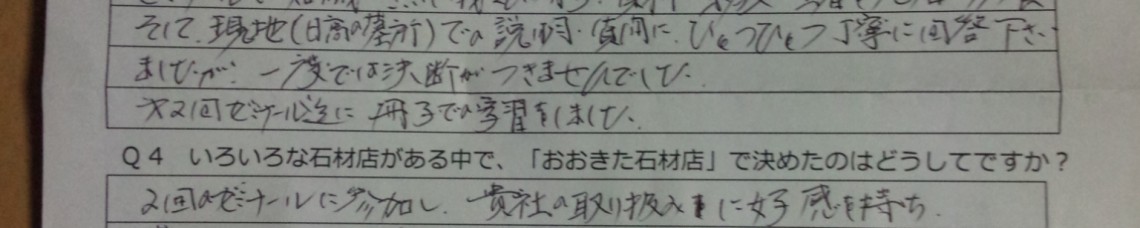 そして、現地(日高の墓所)での説明・質問に、ひとつひとつ丁寧に回答下さい
ましたが、一度では決断がつきませんでした。
第2回ゼミナール迄に冊子での学習をしました。
Q4 いろいろな石材店がある中で、「おおきた石材店」で決めたのはどうしてですか?
2回のゼミナールに参加し、貴社の取り扱いに好感を持ち、